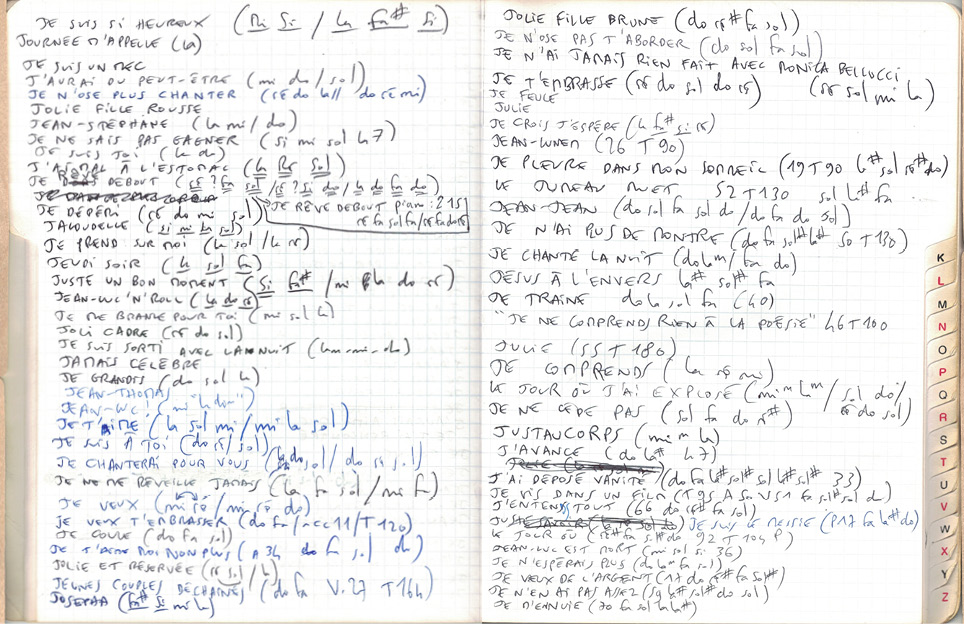 JE SUIS SI HEUREUX (Mi Si / la fa# si)
JOURNÉE D'APPELLE (la)
JE SUIS UN MEC
J'AURAI DU PEUT-ÊTRE (mi do / sol)
JE N'OSE PLUS CHANTER (ré do la // do ré mi)
JOLIE FILLE ROUSSE
JEAN-STÉPHANE (la mi / do)
JE NE SAIS PAS GAGNER (si mi sol la 7)
JE SUIS TOI (la do)
J'AI MAL À L'ESTOMAC (la Ré Sol)
JE RÊVE DEBOUT (ré ? fa sol / ré ? si do / la do fa do)
JE RÊVE DEBOUT piano : 215
ré fa sol fa / ré fa do ré
JE DÉPÉRI (ré do mi sol)
JALOUDELLE (si do mi sol)
JE PREND SUR MOI (la sol / la ré)
JEUDI SOIR (la sol fa)
JUSTE UN BON MOMENT (Si fa# / mi la do ré)
JEAN-WC'N'ROLL (la do ré)
JE ME BRANLE POUR TOI (mi sol la)
JOLI CADRE (ré do sol)
JE SUIS SORTI AVEC LA NUIT (lam-mi-do)
JAMAIS CÉLÈBRE
JE GRANDIS (do sol la)
JEAN-THOMAS
JEAN-WC! (mi "la dom")
JE T'AIME (la sol mi / mi la sol)
JE SUIS À TOI (do ré / sol)
JE CHANTERAI POUR VOUS (la do sol / do ré sol)
JE NE ME RÉVEILLE JAMAIS (la fa sol / mi fa)
JE VEUX (mi ré / mi ré do)
JE VEUX T'EMBRASSER (do fa / acc 11 / T 120)
JE COULE (do fa sol)
JE T'AIME MOI NON PLUS (A 34 do fa sol do)
JOLIE ET RÉSERVÉE (ré sol / la)
JEUNES COUPLES DÉCHAÎNÉS (do fa V.27 T 164)
JOSEPHA (fa# si mi la)
JOLIE FILLE BRUNE (do ré# fa sol)
JE N'OSE PAS T'ABORDER (do sol fa sol)
JE N'AI JAMAIS RIEN FAIT AVEC MONICA BELLUCCI
(ré sol mi la)
JE T'EMBRASSE (ré do sol do ré)
JE FEULE
JULIE
JE CROIS J'ESPÈRE (la fa# si ré)
JEAN-WNEN (26 T 90)
JE PLEURE DANS MON SOMMEIL (19 T 90 la# sol ré# do)
LE JUMEAU MUET 52 T 130 sol la# fa
JEAN-JEAN (do sol fa sol do / do fa do sol)
JE N'AI PLUS DE MONTRE (do fa sol# la# 50 T 130)
JE CHANTE LA NUIT (do lam / fa do)
JESUS À L'ENVERS la# sol# fa
JE TRAÎNE do la sol fa (40)
"JE NE COMPRENDS RIEN À LA POÉSIE" 46 T 100
JULIE (55 T 180)
JE COMPRENDS (la ré mi)
LE JOUR OÙ J'AI EXPLOSÉ (mim lam / sol do / ré do sol)
JE NE CÈDE PAS (sol fa do ré#)
JUSTAUCORPS (mi m la)
J'AVANCE (do la# 47)
J'AI DÉPOSÉ VANITÉ (do fa la# sol# sol la# sol# 33)
JE VIS DANS UN FILM (T 95 A 50 V 51 fa sol# sol do)
J'ENTENDS TOUT (66 do ré# fa sol)
JE SUIS LE MESSIE (P17 fa la# do)
LE JOUR OÙ (ré# fa sol# do 92 T 104 P)
JEAN-WC EST MORT (mi sol si 36)
JE N'ESPÉRAIS PLUS (do lam fa sol)
JE VEUX DE L'ARGENT (17 do ré# fa sol#)
JE N'EN AI PAS ASSEZ (59 la# sol# do sol)
JE M'ENNUIE (70 fa sol la la#)
K
L
M
N
O
P
Q
R
S
T
U
V
W
X
Y
Z